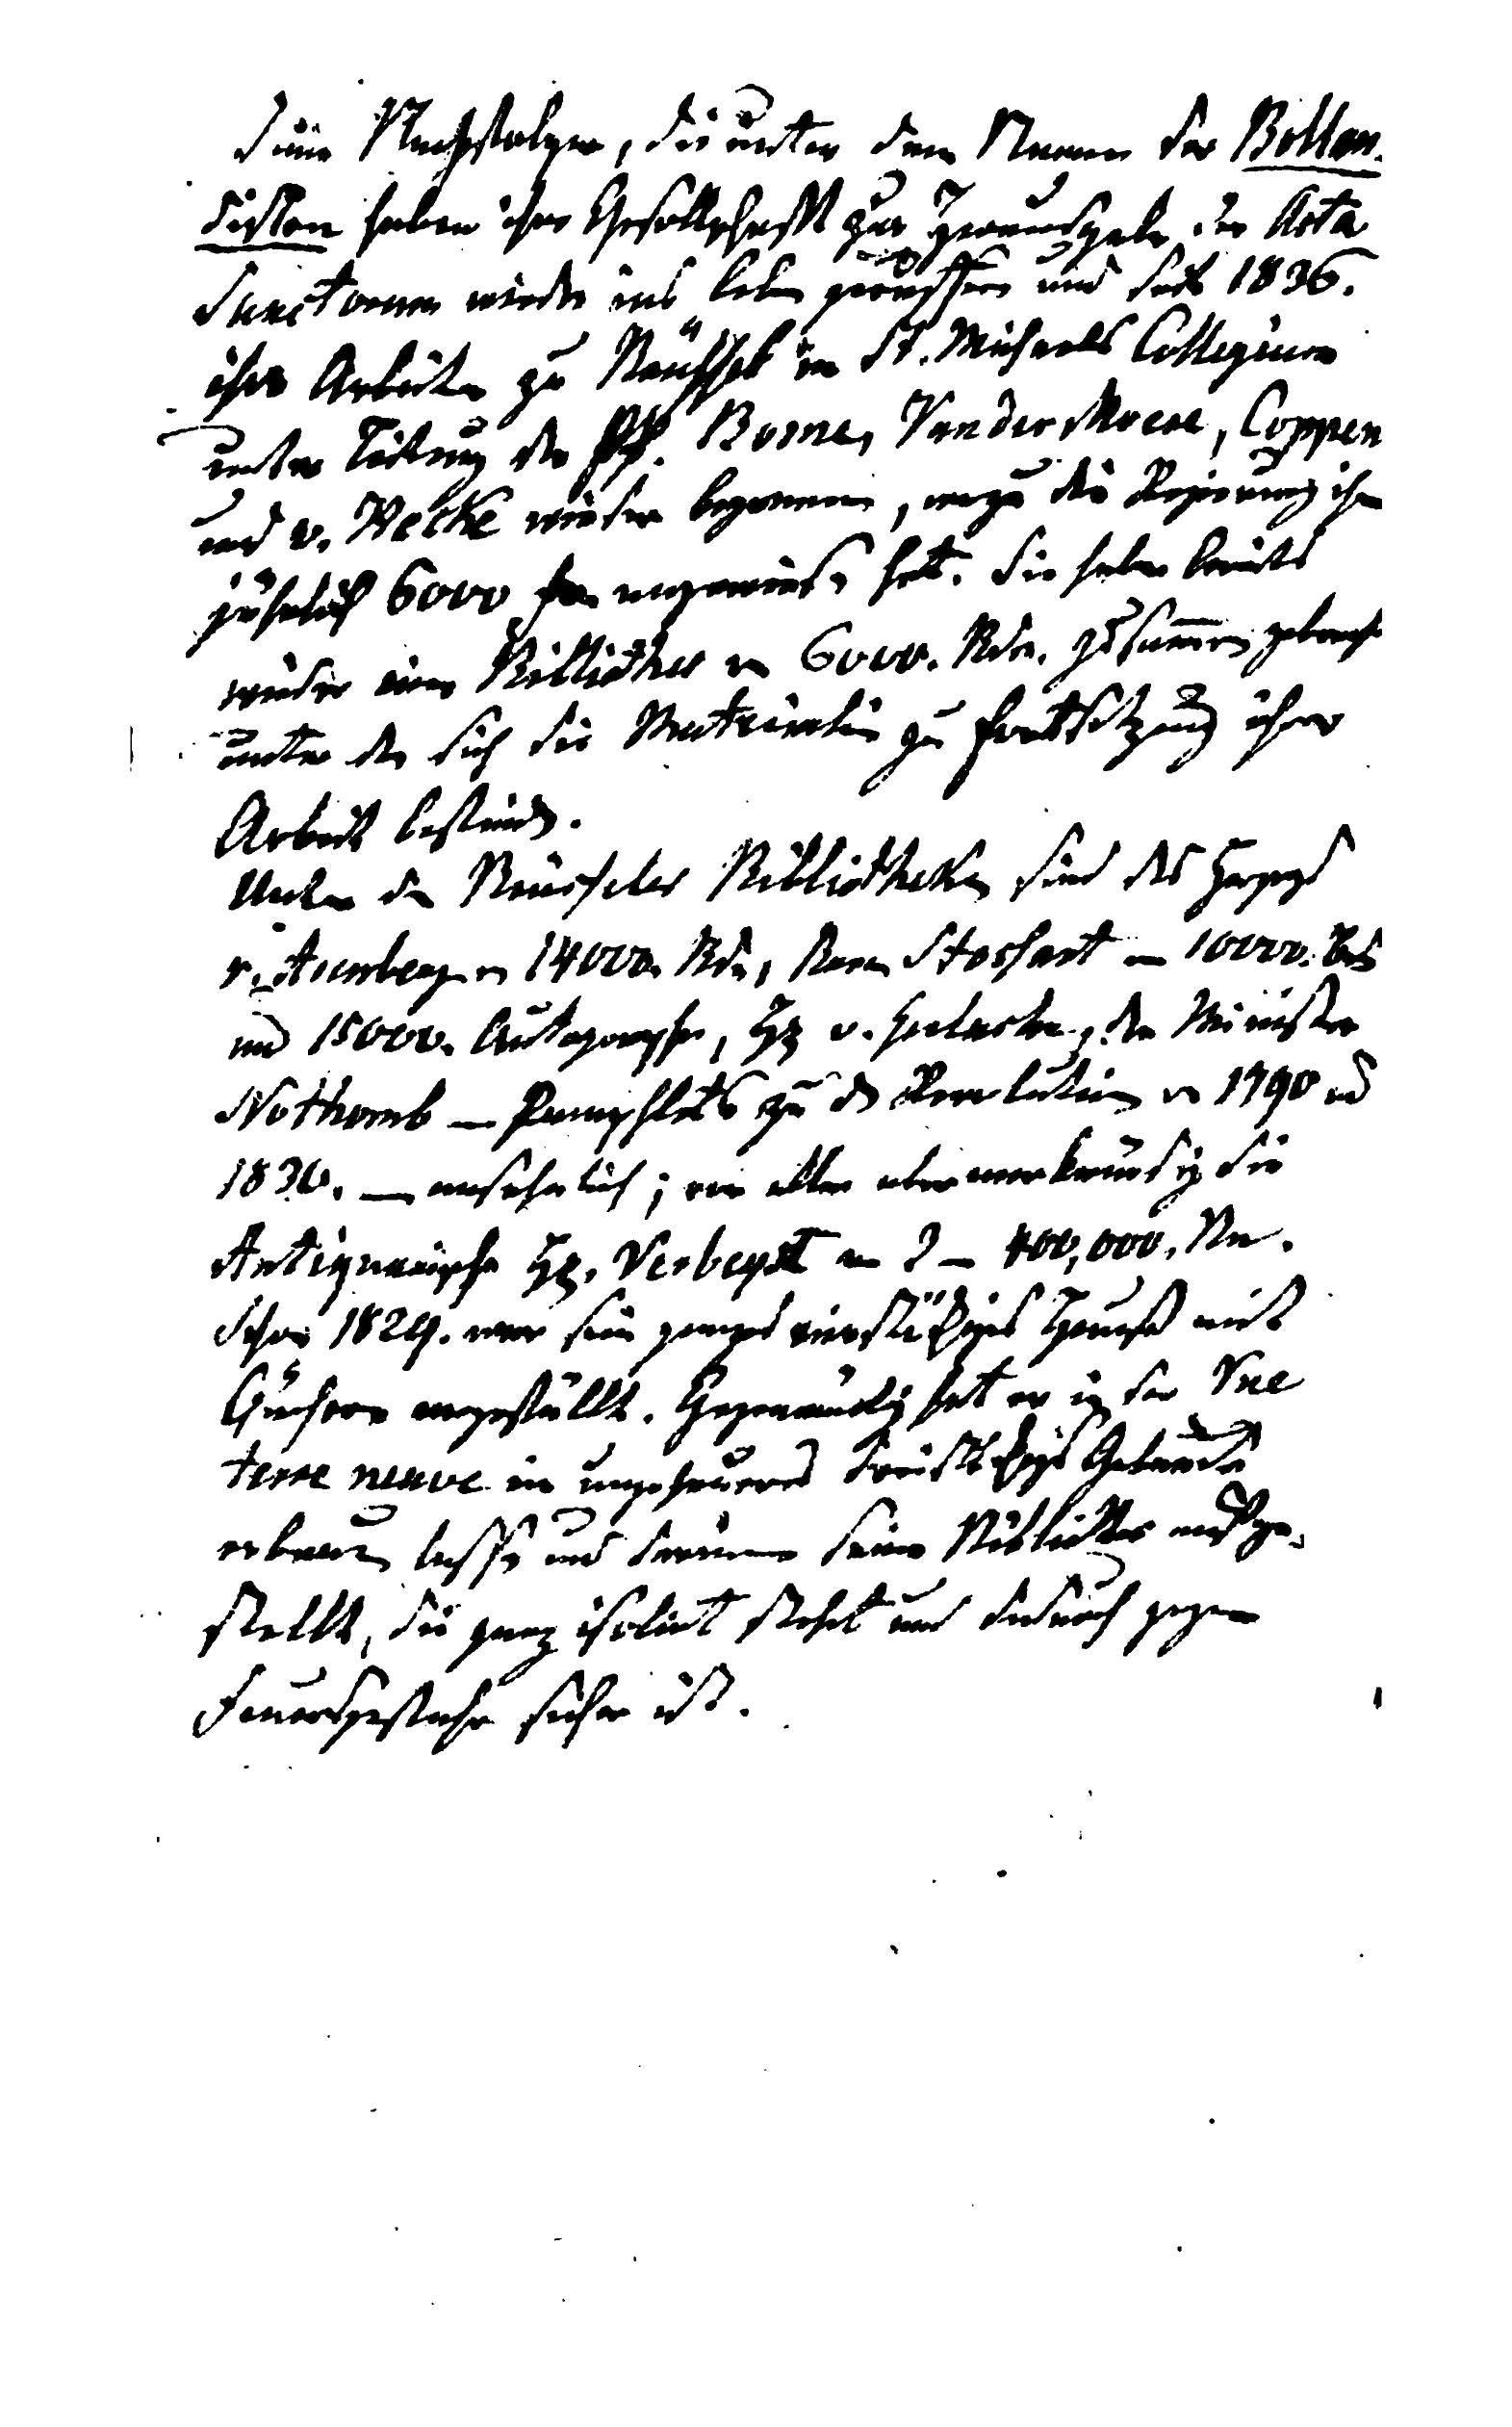 Seine Nachfolger, die unter dem Namen der Bollan-
disten haben ihre Gesellschaft zur Herausgabe der Acta
Sanctorum wieder ins Leben gerufen und seit 1836.
ihre Arbeiten zu Brüssel im St. Michaels Collegium
unter Leitung der PP. Boone, Vander Moere, Coppen
und v. Hecke wieder begonnen, wozu die Regierung ihnen
jährlich 6000 fr. angewiesen hat. Sie haben bereits
wieder eine Bibliothek von 6000. Bdn. zusammen gebracht
unter der sich die Materialien zur Fortsetzung ihrer
Arbeit befinden.
Unter den Brüsseler Bibliotheken sind des Herzogs
v. Aremberg von 14000 Bdn, Baron Stassart — 10000. Bd
und 15000. Autographen, H. v. der Minister
Nothomb — Pamphlets zu den Revolutionen von 1790 und
1830. — ansehnlich; vor allen aber merkwürdig die
Antiquarische H. Verbeyst von 3 — 400,000. Bn.
Schon 1824. war sein ganzes vierstöckiges Haus mit
Büchern angefüllt. Gegenwärtig hat er in der Rue
terre neuve ein ungeheueres dreistöckiges Gebäude
erbauen lassen und darinnen seine Bibliothek aufge-
stellt, die ganz isolirt steht und dadurch gegen
Feuersgefahr sicher ist.